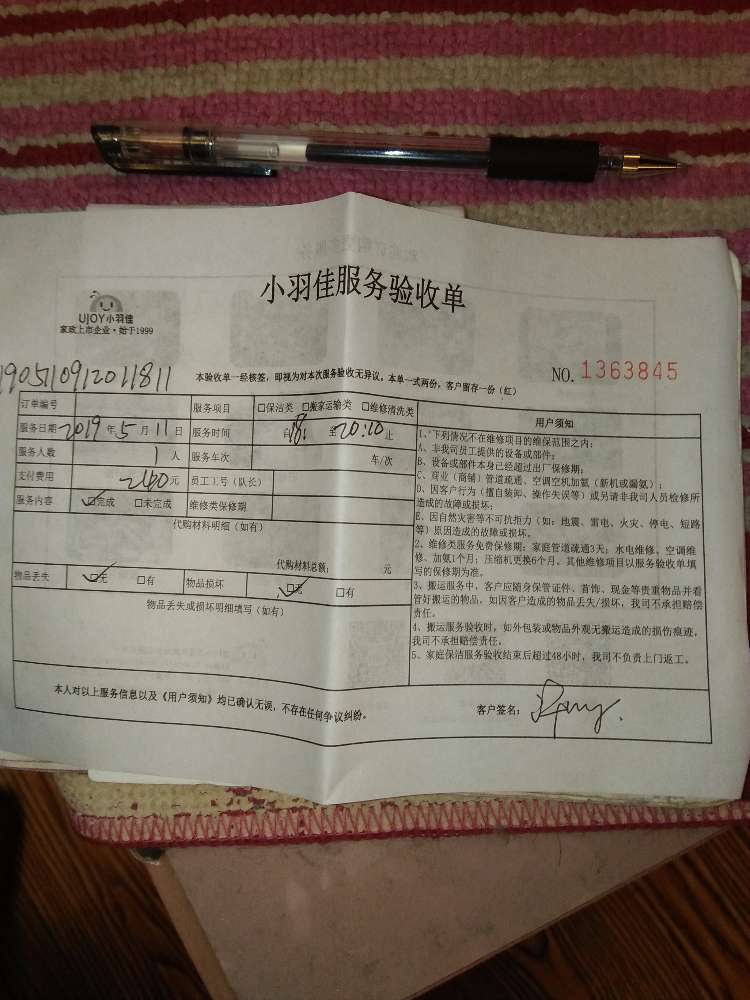 小羽佳服务验收单
UJOY小羽佳
家政上市企业·始于1999
本验收单一经核签，即视为对本次服务验收无异议。本单一式两份，客户留存一份（红）
NO. 1363845
190511091201181 1
订单编号 服务项目 □保洁类 □搬家运输类 □维修清洗类
服务日期 2019年5月11日 服务时间 自18: 至20:10止
服务人数 1人 服务车次 车/次
支付费用 元 员工工号（队长）
服务内容 ☑完成 □未完成 维修类保修期
代购材料明细（如有）
代购材料总额： 元
物品丢失 ☑无 □有 物品损坏 ☑无 □有
物品丢失或损坏明细填写（如有）
用户须知
1、下列情况不在维修项目的维保范围之内：
A、非我司员工提供的设备或部件；
B、设备或部件本身已经超过出厂保修期；
C、商业（商铺）管道疏通、空调空机加氟（新机或漏氟）；
D、因客户行为（擅自装卸、操作失误等）或另请非我司人员检修所
造成的故障或损坏；
E、因自然灾害等不可抗拒力（如：地震、雷电、火灾、停电、短路
等）原因造成的故障或损坏。
2、维修类服务免费保修期：家庭管道疏通3天；水电维修、空调维
修、加氟1个月；压缩机更换6个月。其他维修项目以服务验收单填
写的保修期为准。
3、搬运服务中，客户应随身保管证件、首饰、现金等贵重物品并看
管好搬运的物品，如因客户造成的物品丢失/损坏，我司不承担赔偿
责任。
4、搬运服务验收时，如外包装或物品外观无搬运造成的损伤痕迹，
我司不承担赔偿责任。
5、家庭保洁服务验收结束后超过48小时，我司不负责上门返工。
本人对以上服务信息以及《用户须知》均已确认无误，不存在任何争议纠纷。
客户签名：